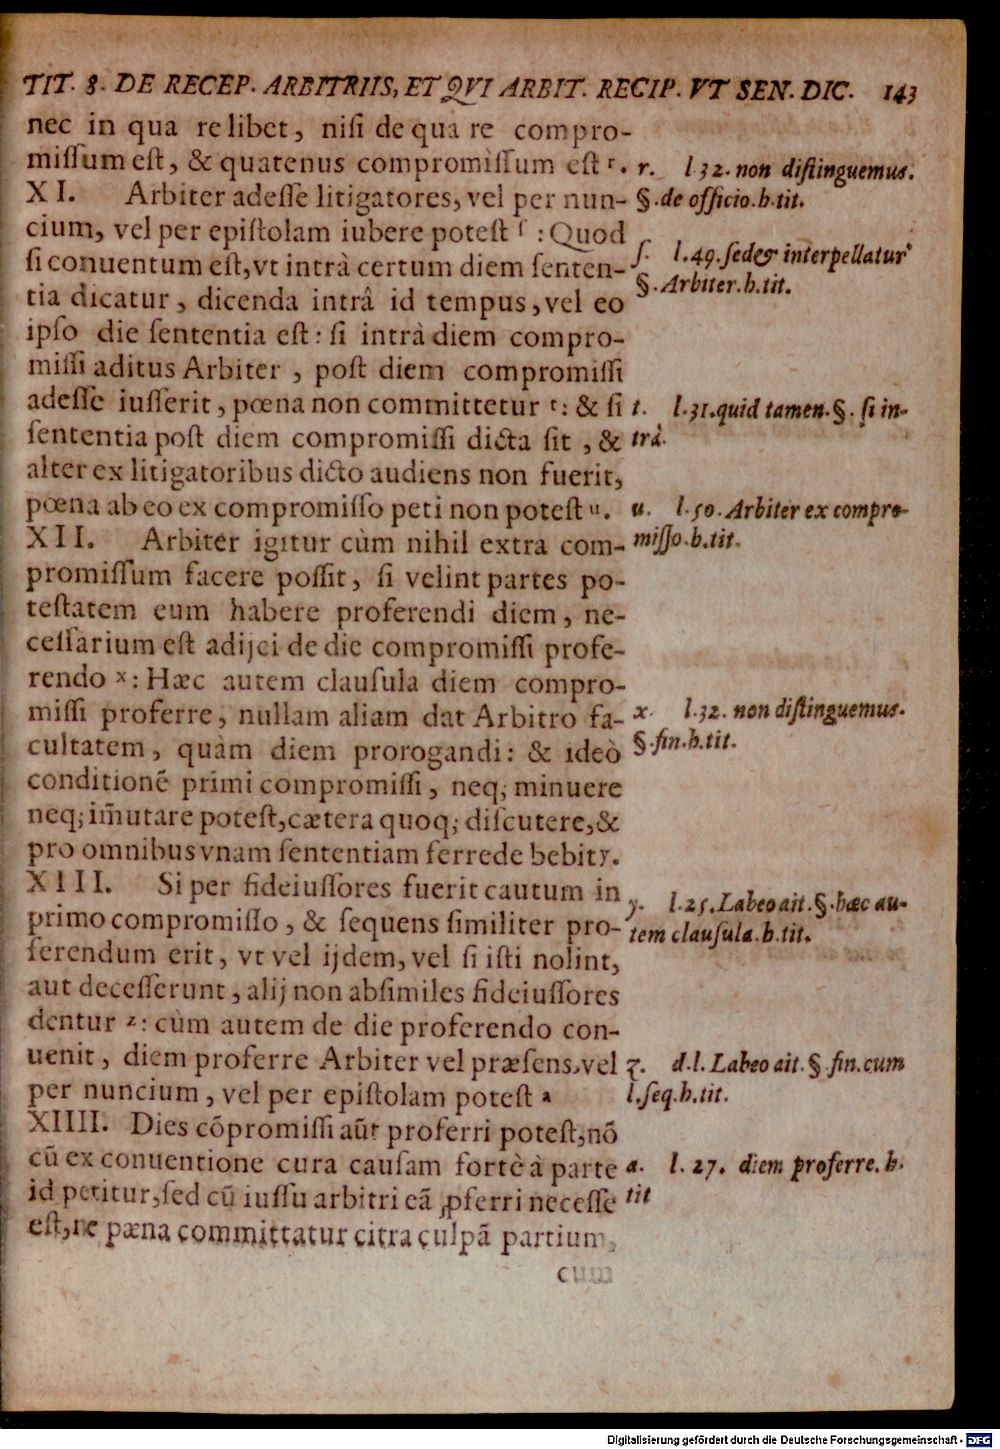 TIT. 8. DE RECEP. ARBITRIIS, ET QVI ARBIT. RECIP. VT SEN. DIC. 143
nec in qua re libet, niſi de qua re compro-
miſſum eſt, & quatenus compromiſſum eſt r.
XI. Arbiter adeſſe litigatores, vel per nun-
cium, vel per epiſtolam iubere poteſt ſ : Quod
ſi conuentum eſt, vt intrà certum diem ſenten-
tia dicatur, dicenda intrâ id tempus, vel eo
ipſo die ſententia eſt: ſi intrà diem compro-
miſſi aditus Arbiter, poſt diem compromiſſi
adeſſe iuſſerit, pœna non committetur t: & ſi
ſententia poſt diem compromiſſi dicta ſit, &
alter ex litigatoribus dicto audiens non fuerit,
pœna ab eo ex compromiſſo peti non poteſt u.
XII. Arbiter igitur cùm nihil extra com-
promiſſum facere poſſit, ſi velint partes po-
teſtatem eum habere proferendi diem, ne-
ceſſarium eſt adijci de die compromiſſi profe-
rendo x: Hæc autem clauſula diem compro-
miſſi proferre, nullam aliam dat Arbitro fa-
cultatem, quàm diem prorogandi: & ideò
conditionẽ primi compromiſſi, neq; minuere
neq; im̃utare poteſt, cætera quoq; diſcutere, &
pro omnibus vnam ſententiam ferrede bebit y.
XIII. Si per fideiuſſores fuerit cautum in
primo compromiſſo, & ſequens ſimiliter pro-
ferendum erit, vt vel ijdem, vel ſi iſti nolint,
aut deceſſerunt, alij non abſimiles fideiuſſores
dentur z: cùm autem de die proferendo con-
uenit, diem proferre Arbiter vel præſens, vel
per nuncium, vel per epiſtolam poteſt a
XIIII. Dies cõpromiſſi aũt proferri poteſt, nõ
cũ ex conuentione cura cauſam fortè à parte
id petitur, ſed cũ iuſſu arbitri eã ꝓferri neceſſe
eſt, ne pæna committatur citra culpã partium,
cum
r. l. 32. non diſtinguemus.
§. de officio. h. tit.
ſ. l. 49. ſed & interpellatur
§. Arbiter. h. tit.
t. l. 31. quid tamen. §. ſi in-
trà.
u. l. 50. Arbiter ex compro-
miſſo. h. tit.
x. l. 32. non diſtinguemus.
§. fin. h. tit.
y. l. 25. Labeo ait. §. hæc au-
tem clauſula. h. tit.
z. d. l. Labeo ait. §. fin. cum
l. ſeq. h. tit.
a. l. 27. diem proferre. h.
tit
Digitalisierung gefördert durch die Deutsche Forschungsgemeinschaft - DFG